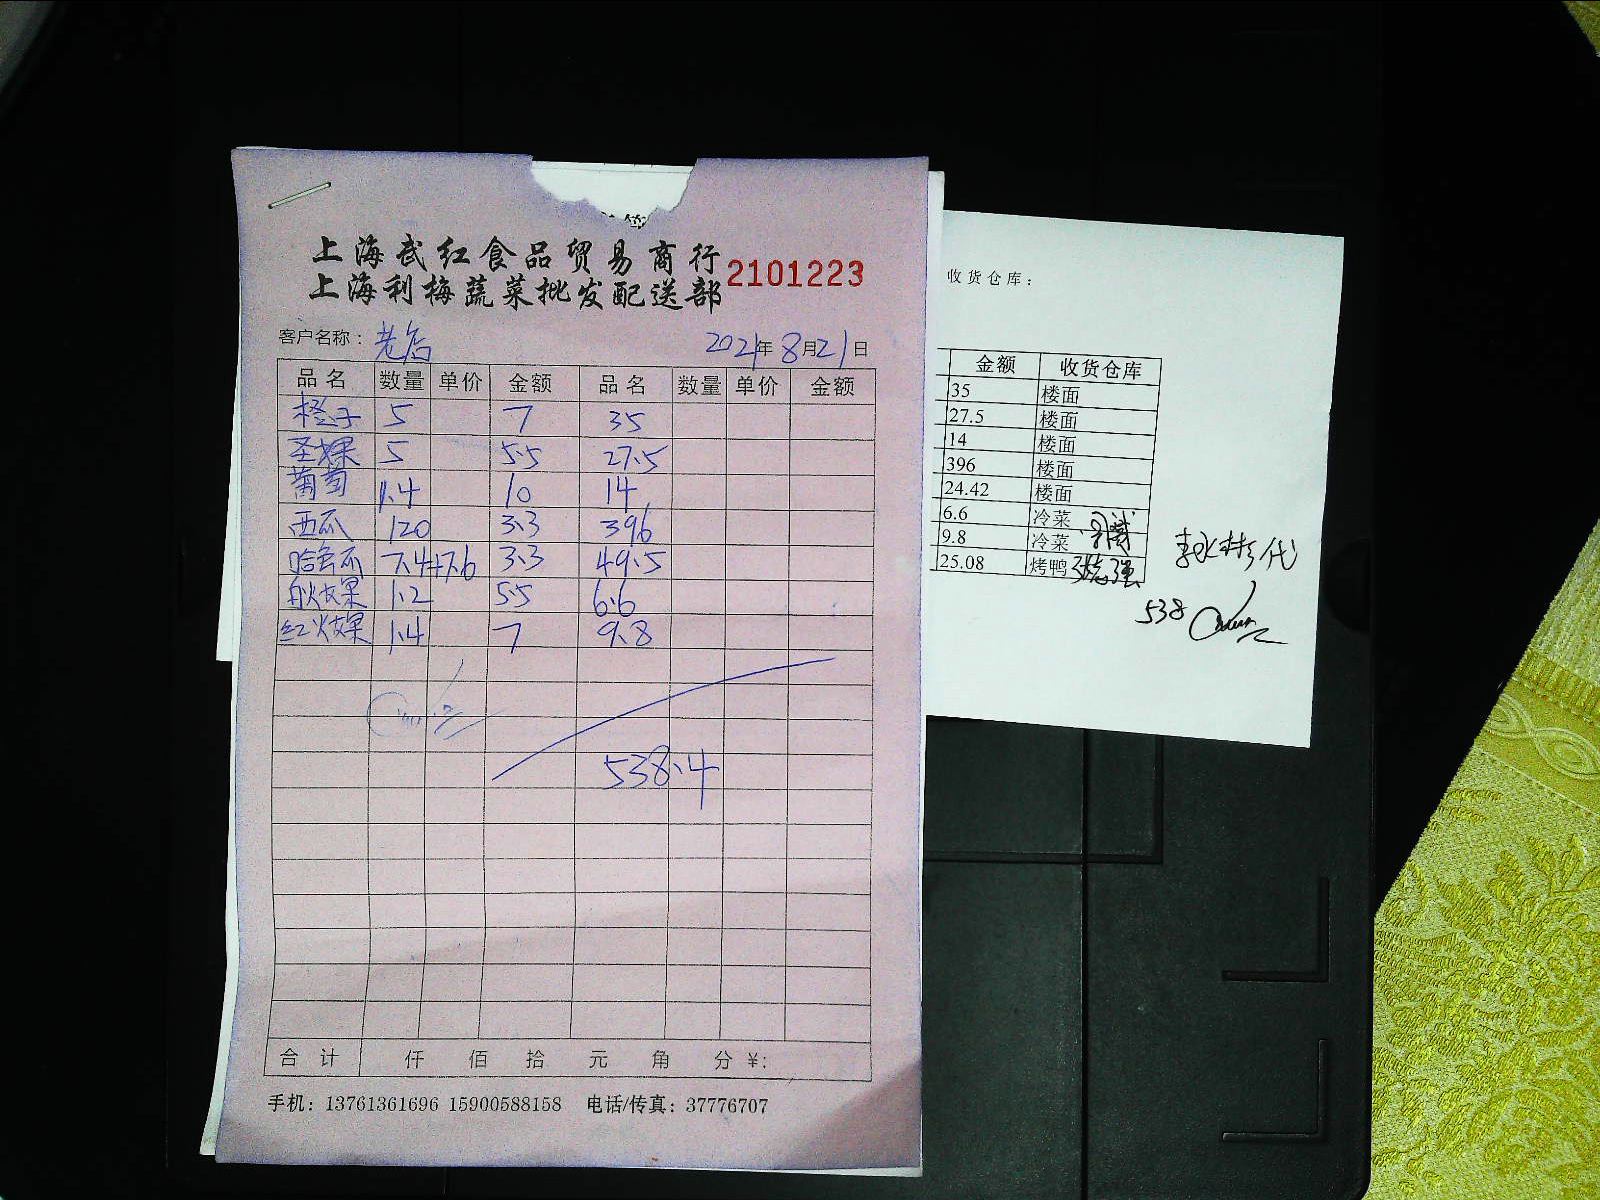 上海武红食品贸易商行
上海利梅蔬菜批发配送部
2101223
客户名称：老店 2021年8月21日
品名 数量 单价 金额 品名 数量 单价 金额
橙子 5 7 35
圣女果 5 5.5 27.5
葡萄 1.4 10 14
西瓜 120 3.3 396
哈密瓜 7.4+7.6 3.3 49.5
白火龙果 1.2 5.5 6.6
红火龙果 1.4 7 9.8
538.4
合计 仟 佰 拾 元 角 分 ¥:
手机：13761361696 15900588158 电话/传真：37776707
收货仓库：
金额 收货仓库
35 楼面
27.5 楼面
14 楼面
396 楼面
24.42 楼面
6.6 冷菜
9.8 冷菜
25.08 烤鸭
538